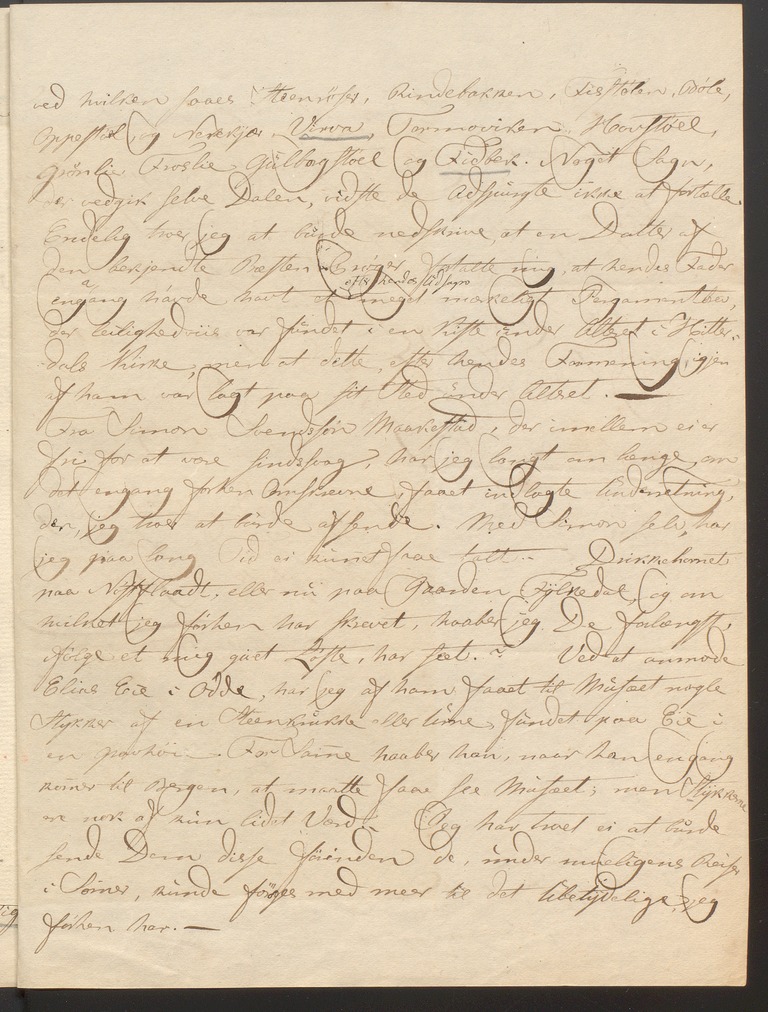 ved hvilken saaes Steenröser, Rindebakken, Fisstølen, Bóle,
Oppestøl, og Nerekjær, Virva, Tormoviken, Hovstöel,
Grönlie, Froslie, Gülborgstoel og Fiøbek. Noget Sagn,
der vedgik selve Dalen, vidste de Adspürgte ikke at fortælle.
Endelig troer jeg at bürde nedskrive, at en Datter af
den bekjendte Præsten Crøger fortalte mig, at hendes Fader
efter hendes Udsagn
engang havde havt et meget mærkeligt Pergamentbrev,
der leilighedviis var fündet i en Kiste ünder Alteret i Hitter-
dals Kirke, men at dette, efter hendes Formening, igjen
af ham var lagt paa sit Sted ünder Alteret. —
Fra Simon Svendssön Maakestad, der imellem ei er
fri for at være sindssvag, har jeg langt om længe, om
det engang forhen omskrevne, faaet indlagte Underretning,
den, jeg troer at bürde afsende. Med Simon selv, har
jeg paa lang Tid ei künnet faae talt. – Drikkehornet
paa Flaadt, eller nü paa Gaarden Fÿlkedal, og om
hvilket jeg förhen har skrevet, haaber jeg De forlængst,
ifölge et mig givet Löfte, har seet. – Ved at anmode
Elias Eie i Odde, har jeg af ham faaet til Müsæet nogle
Stÿkker af en Steenkrükke eller Ürne, fündet paa Eie i
en . For Samme haaber han, naar han engang
kommer til Bergen, at maatte faae see Müsæet; men Stÿkkerne
ere nok af kün lidet Værd. – Jeg har troet ei at bürde
sende Dem disse förinden de, ünder müeligens Reiser
i Sommer, künde föies med meer til det übetÿdelige, jeg
förhen har. —